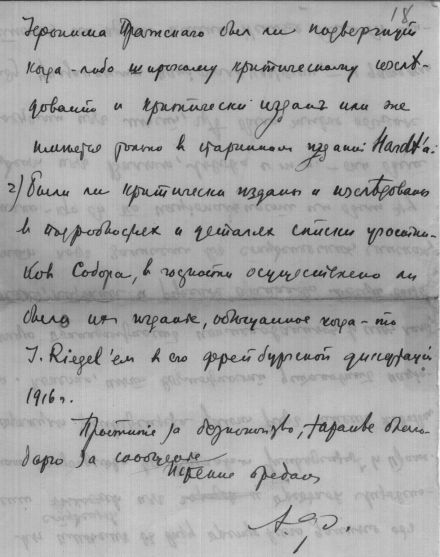 18
Іеронима Пражскаго был ли подвергнут
когда-либо широкому критическому изслѣ-
дованію и критически издан или же
имѣется только в старинном изданіи Hardt'а.
2) Были ли критически изданы и изслѣдованы
в подробностях и деталях списки участни-
ков Собора, в частности осуществлено ли
было их издание, обѣщанное когда-то
J. Riegel'ем в его фрейбургской диссертаціи
1916 г.
Простите за безпокойство, заранѣе благо-
дарю за сообщение
Искренне преданный
А. Ф.